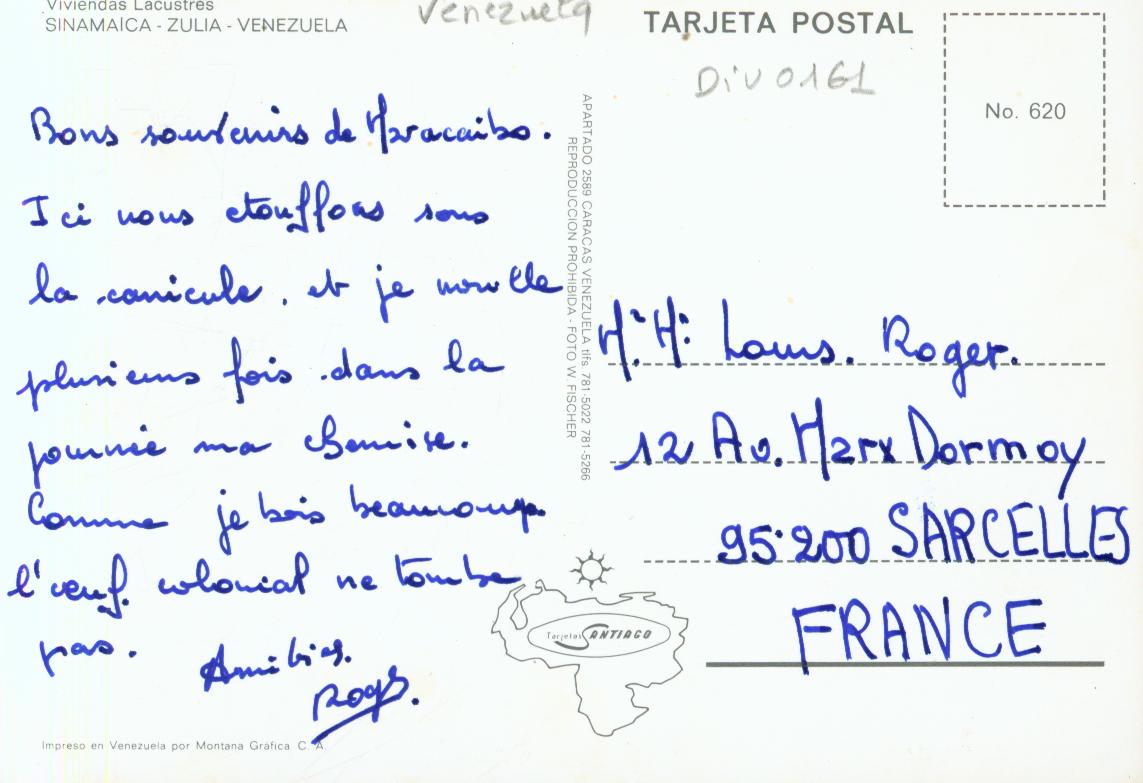 Viviendas Lacustres
SINAMAICA - ZULIA - VENEZUELA
Venezuela
TARJETA POSTAL
Div 0161
No. 620
Bons souvenirs de Maracaibo.
Ici nous étouffons sous
la canicule, et je mouille
plusieurs fois dans la
journée ma chemise.
Comme je bois beaucoup
l'oeuf colonial ne tombe
pas.
Amitiés.
APARTADO 2589 CARACAS VENEZUELA tlfs. 781-5022 781-5266
REPRODUCCION PROHIBIDA - FOTO W. FISCHER
Louis. Roger.
12 Av. Marx Dormoy
95.200 SARCELLES
FRANCE
Tarjetas SANTIAGO
Impreso en Venezuela por Montana Gráfica C. A.